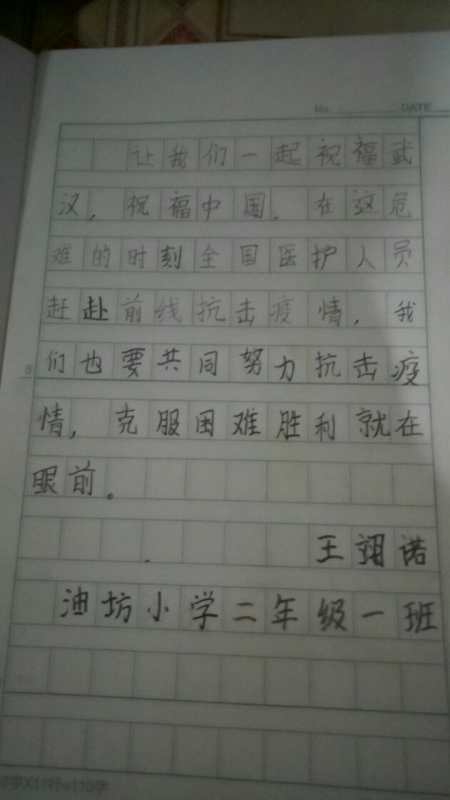 No. DATE
让我们一起祝福武
汉，祝福中国。在这危
难的时刻全国医护人员
赶赴前线抗击疫情，我
们也要共同努力抗击疫
情，克服困难胜利就在
眼前。
王翊诺
油坊小学二年级一班